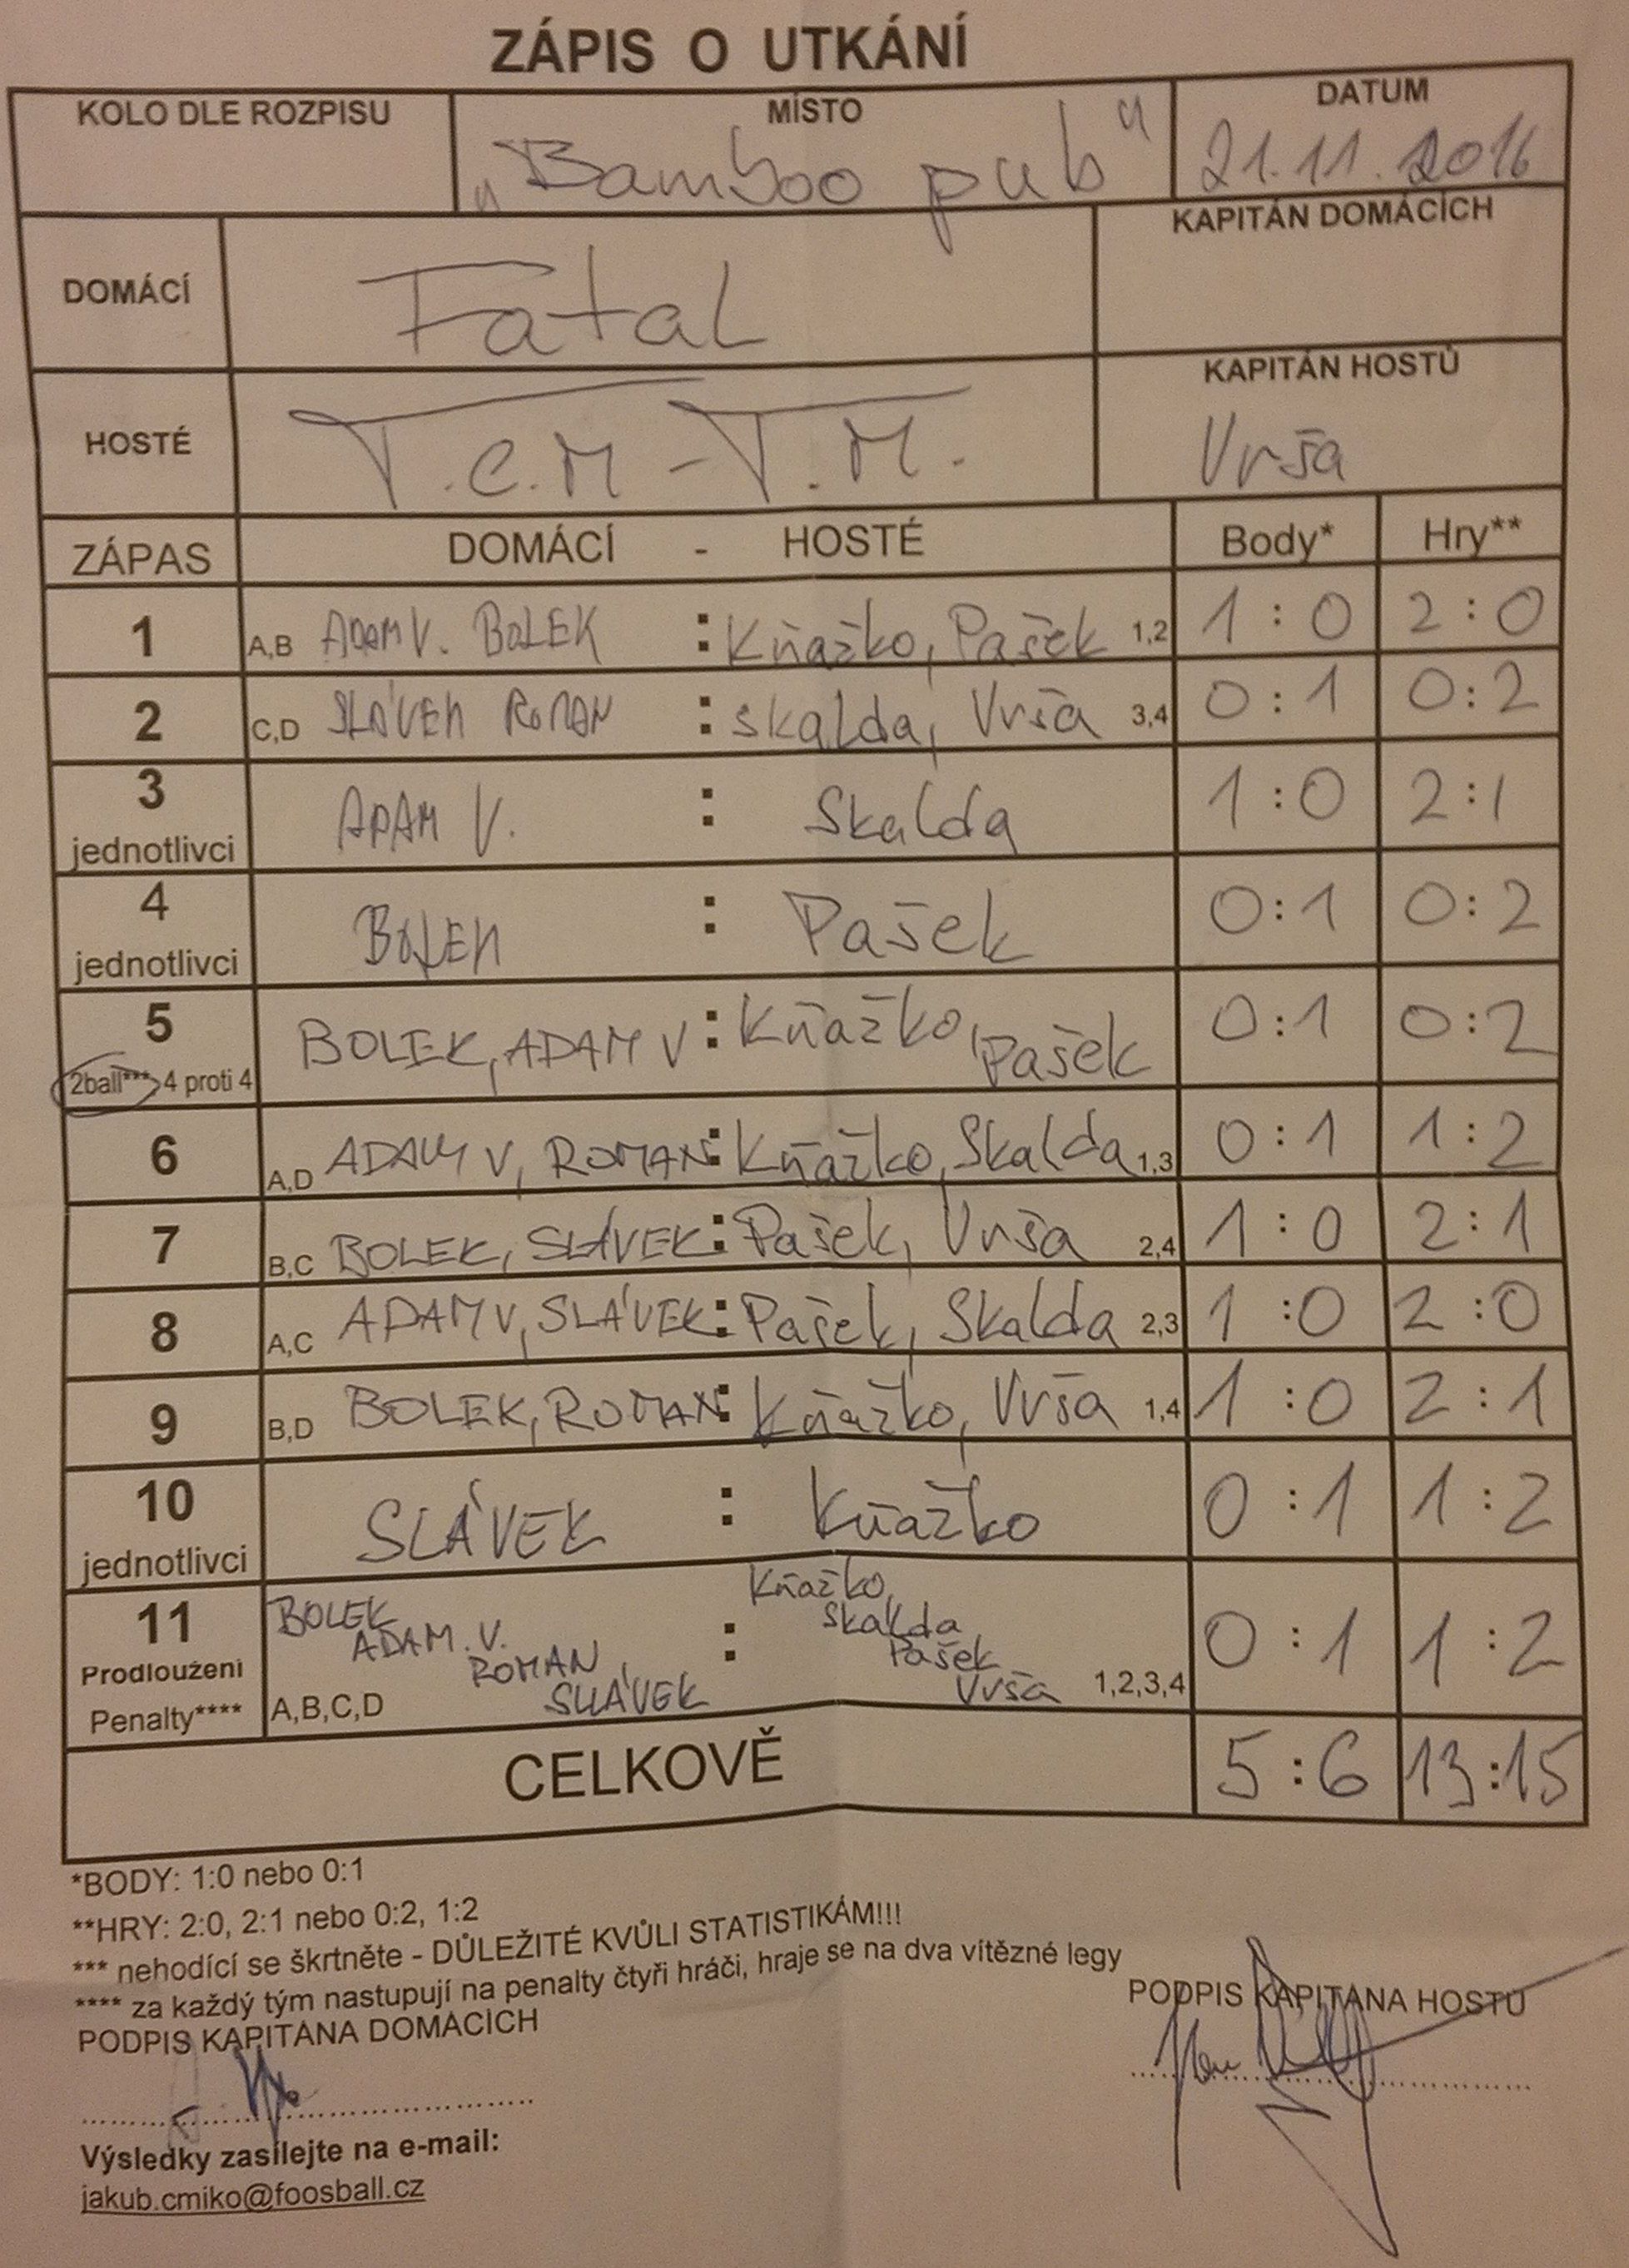 ZÁPIS O UTKÁNÍ
KOLO DLE ROZPISU
MÍSTO
DATUM
"Bamboo pub"
21.11.2016
DOMÁCÍ
Fatal
KAPITÁN DOMÁCÍCH
HOSTÉ
T.C.M-T.M.
KAPITÁN HOSTŮ
Vrša
ZÁPAS DOMÁCÍ - HOSTÉ Body* Hry**
1 A,B ADAM V. BOLEK : Kňažko, Pašek 1,2 1:0 2:0
2 C,D SLÁVEK ROMAN : Skalda, Vrša 3,4 0:1 0:2
3 jednotlivci ADAM V. : Skalda 1:0 2:1
4 jednotlivci BOLEK : Pašek 0:1 0:2
5 2ball*** 4 proti 4 BOLEK, ADAM V : Kňažko, Pašek 0:1 0:2
6 A,D ADAM V, ROMAN : Kňažko, Skalda 1,3 0:1 1:2
7 B,C BOLEK, SLÁVEK : Pašek, Vrša 2,4 1:0 2:1
8 A,C ADAM V, SLÁVEK : Pašek, Skalda 2,3 1:0 2:0
9 B,D BOLEK, ROMAN : Kňažko, Vrša 1,4 1:0 2:1
10 jednotlivci SLÁVEK : Kňažko 0:1 1:2
11 Prodloužení Penalty**** A,B,C,D BOLEK ADAM. V. ROMAN SLÁVEK : Kňažko, Skalda, Pašek Vrša 1,2,3,4 0:1 1:2
CELKOVĚ 5:6 13:15
*BODY: 1:0 nebo 0:1
**HRY: 2:0, 2:1 nebo 0:2, 1:2
*** nehodící se škrtněte - DŮLEŽITÉ KVŮLI STATISTIKÁM!!!
**** za každý tým nastupují na penalty čtyři hráči, hraje se na dva vítězné legy
PODPIS KAPITÁNA DOMÁCÍCH
PODPIS KAPITÁNA HOSTŮ
Výsledky zasílejte na e-mail:
jakub.cmiko@foosball.cz